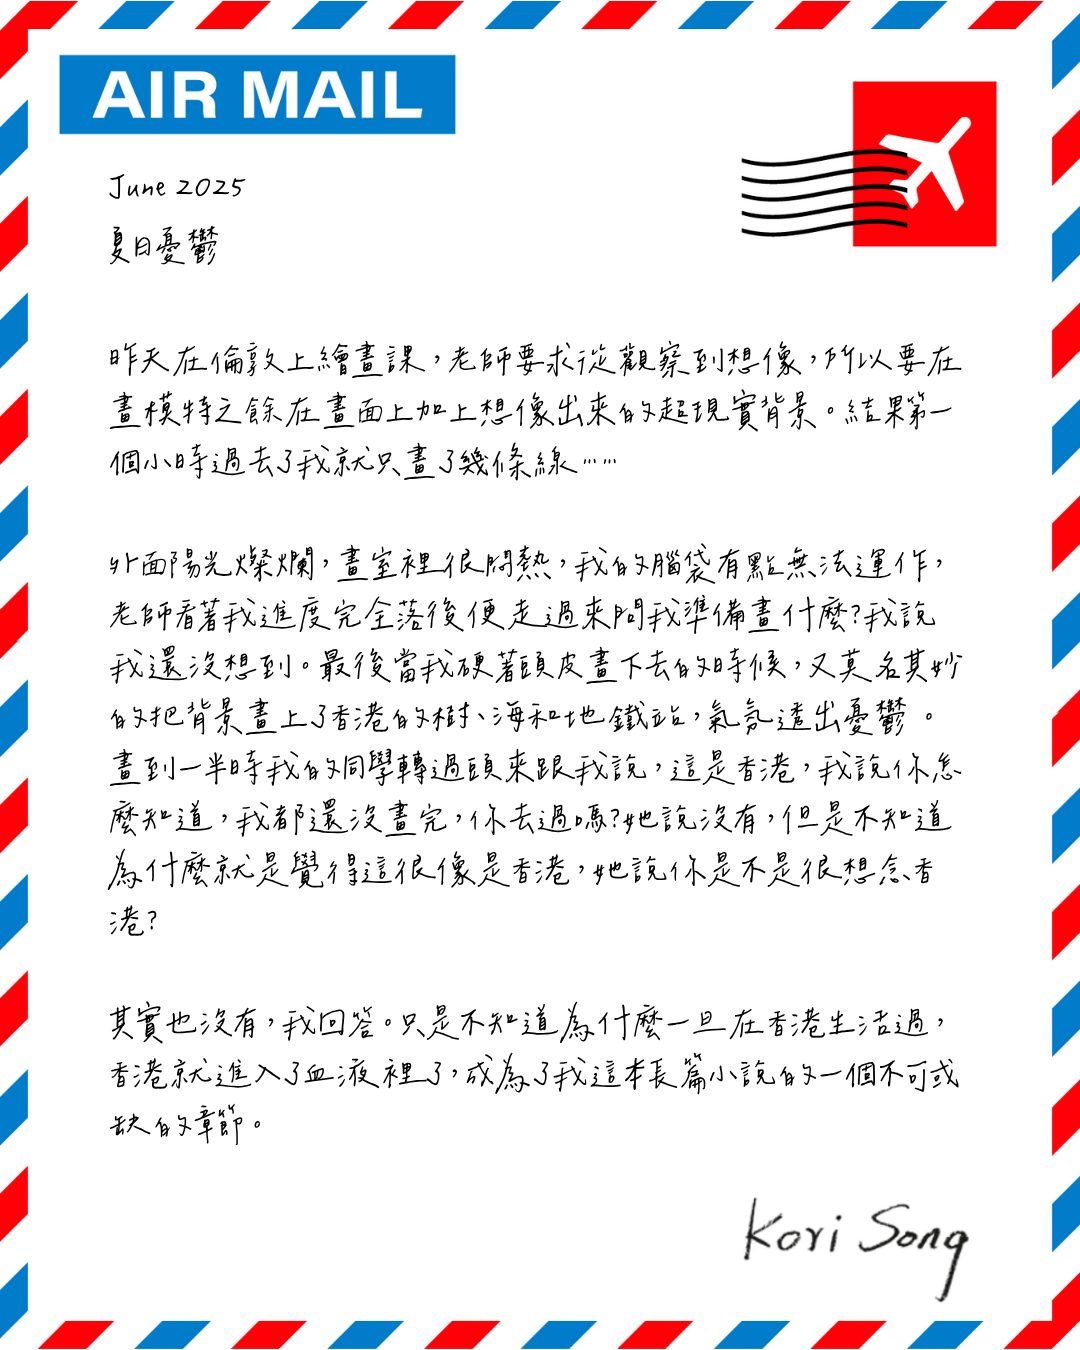 AIR MAIL
June 2025
夏日憂鬱
昨天在倫敦上繪畫課，老師要求從觀察到想像，所以要在
畫模特之餘在畫面上加上想像出來的超現實背景。結果第一
個小時過去了我就只畫了幾條線⋯⋯
外面陽光燦爛，畫室裡很悶熱，我的腦袋有點無法運作，
老師看著我進度完全落後便走過來問我準備畫什麼？我說
我還沒想到。最後當我硬著頭皮畫下去的時候，又莫名其妙
的把背景畫上了香港的樹、海和地鐵站，氣氛透出憂鬱。
畫到一半時我的同學轉過頭來跟我說，這是香港，我說你怎
麼知道，我都還沒畫完，你去過嗎？她說沒有，但是不知道
為什麼就是覺得這很像是香港，她說你是不是很想念香
港？
其實也沒有，我回答。只是不知道為什麼一旦在香港生活過，
香港就進入了血液裡了，成為了我這本長篇小說的一個不可或
缺的章節。
Kori Song